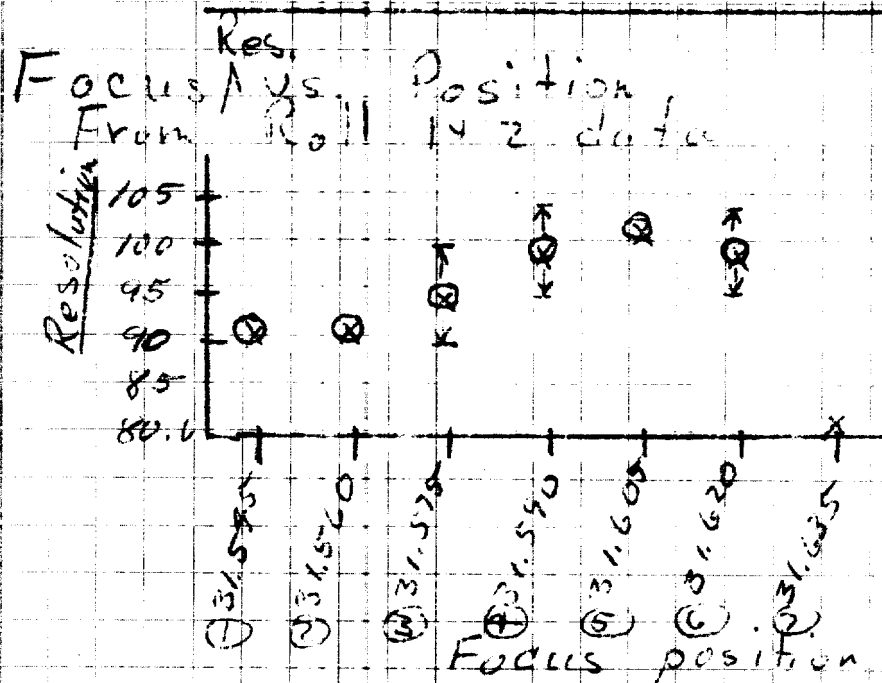 Res.
Focus ∧ vs. Position
From Roll 142 data
Resolution
105
100
95
90
85
80.0
① 31.545
② 31.560
③ 31.575
④ 31.590
⑤ 31.605
⑥ 31.620
⑦ 31.635
Focus position